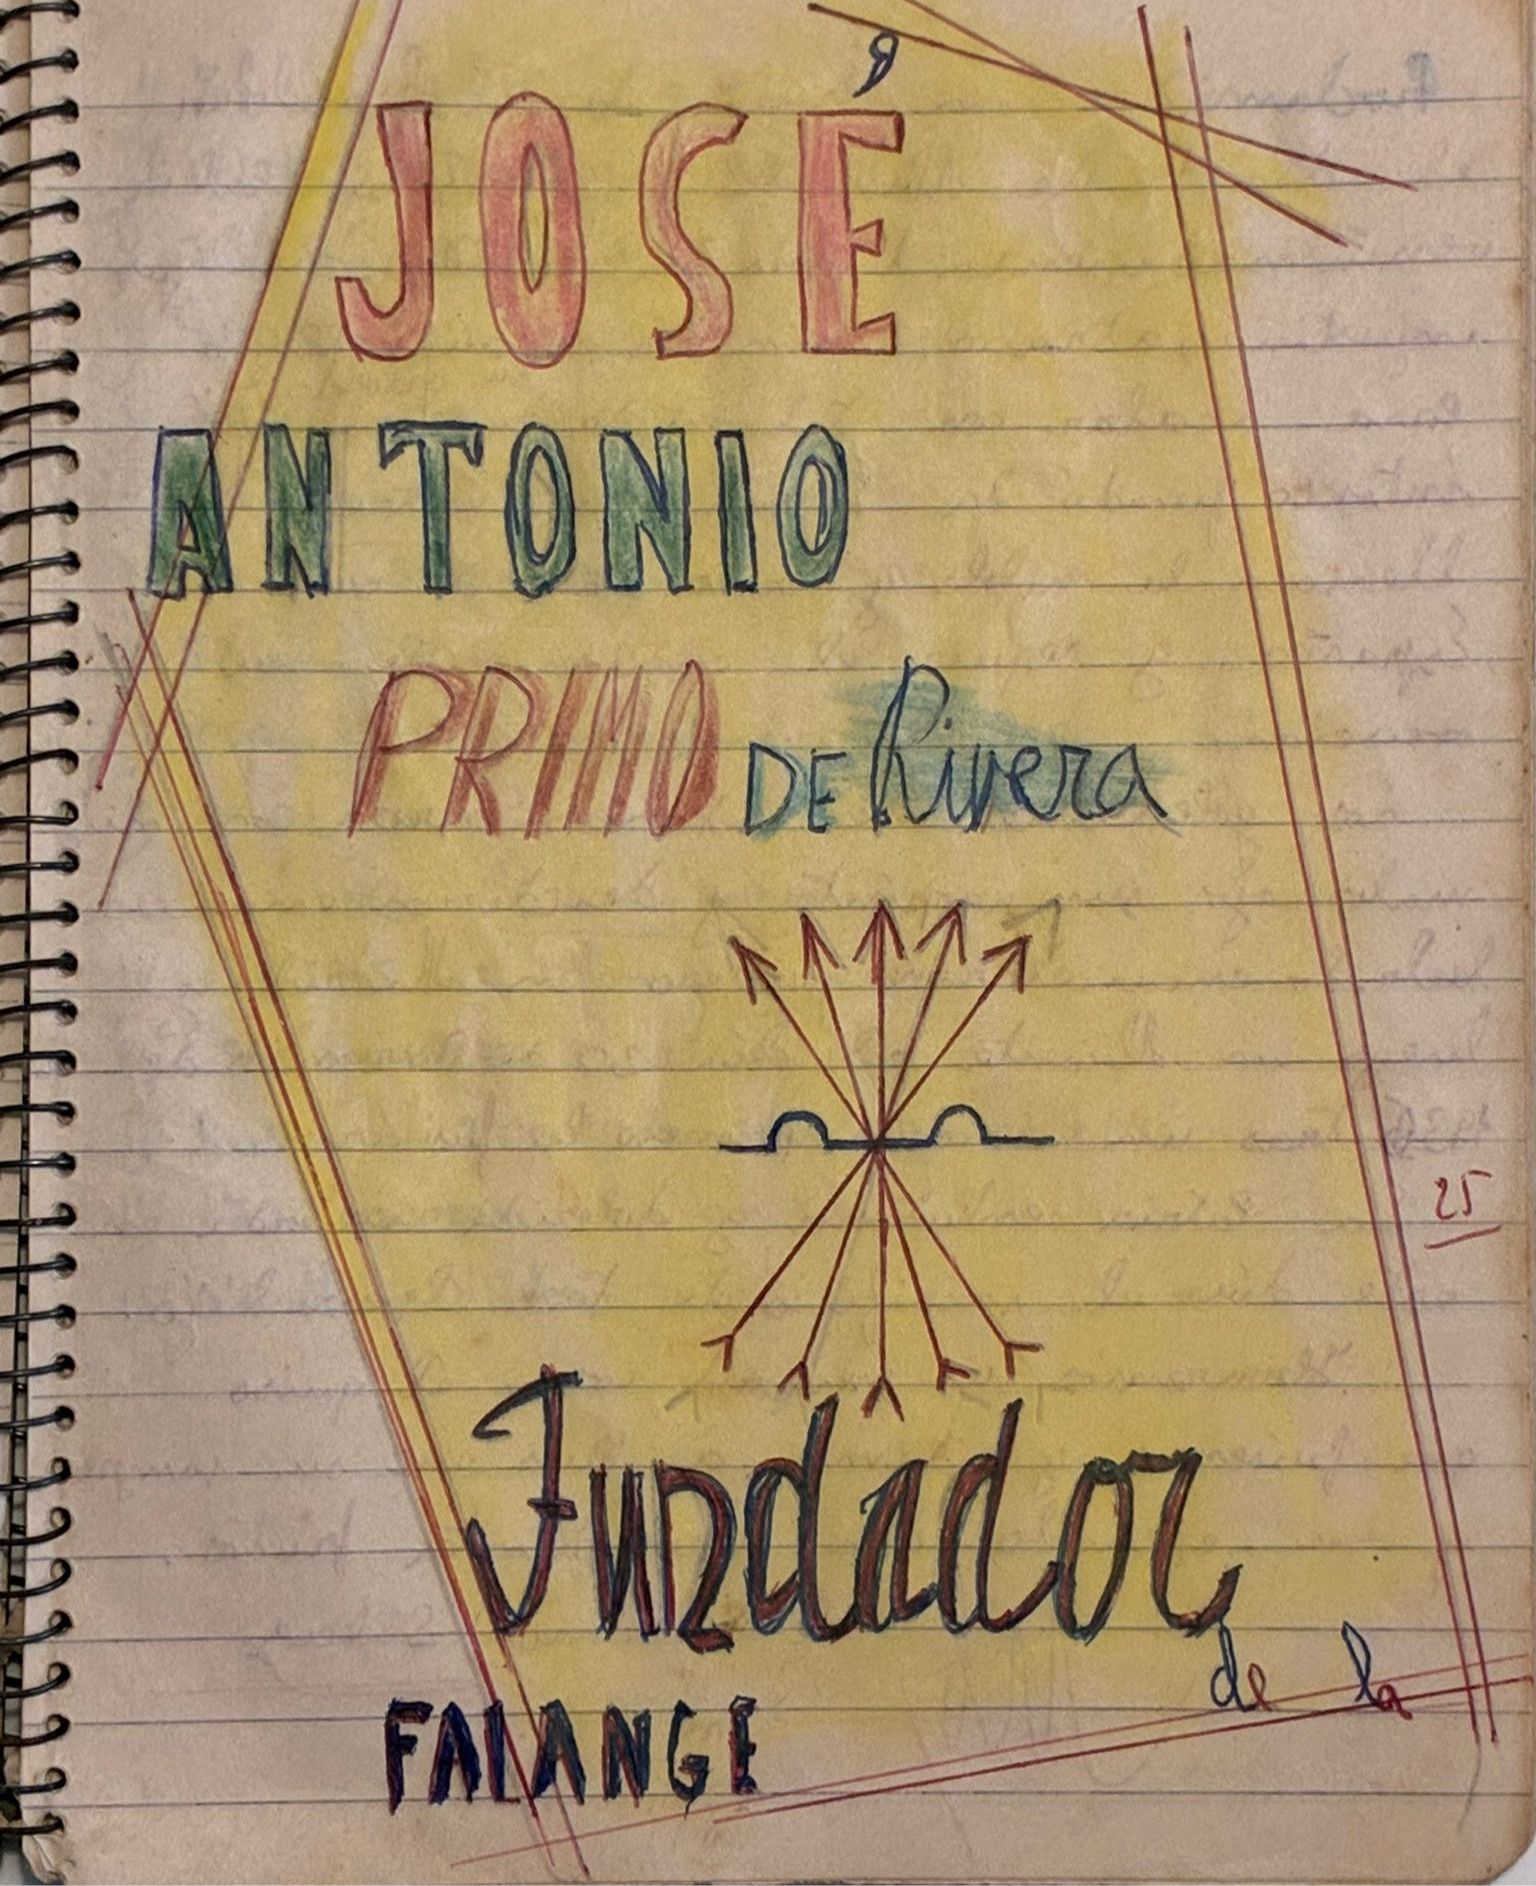 JOSÉ
ANTONIO
PRIMO DE Rivera
25
Fundador
de la
FALANGE